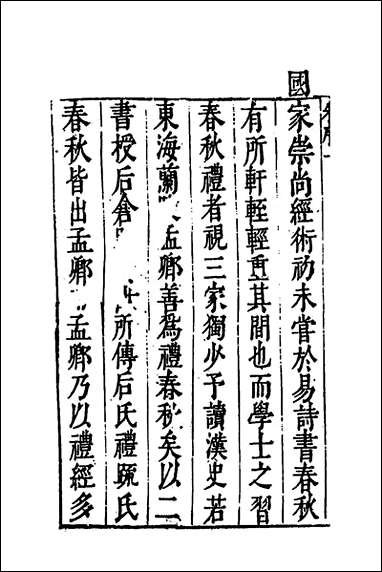 國家崇尚經術初未嘗於易詩書春秋
有所軒輊輕重其間也而學士之習
春秋禮者視三家獨少予讀漢史若
東海蘭孟卿善為禮春秋矣以二
書授后倉所傳后氏禮疏氏
春秋皆出孟卿孟卿乃以禮經多